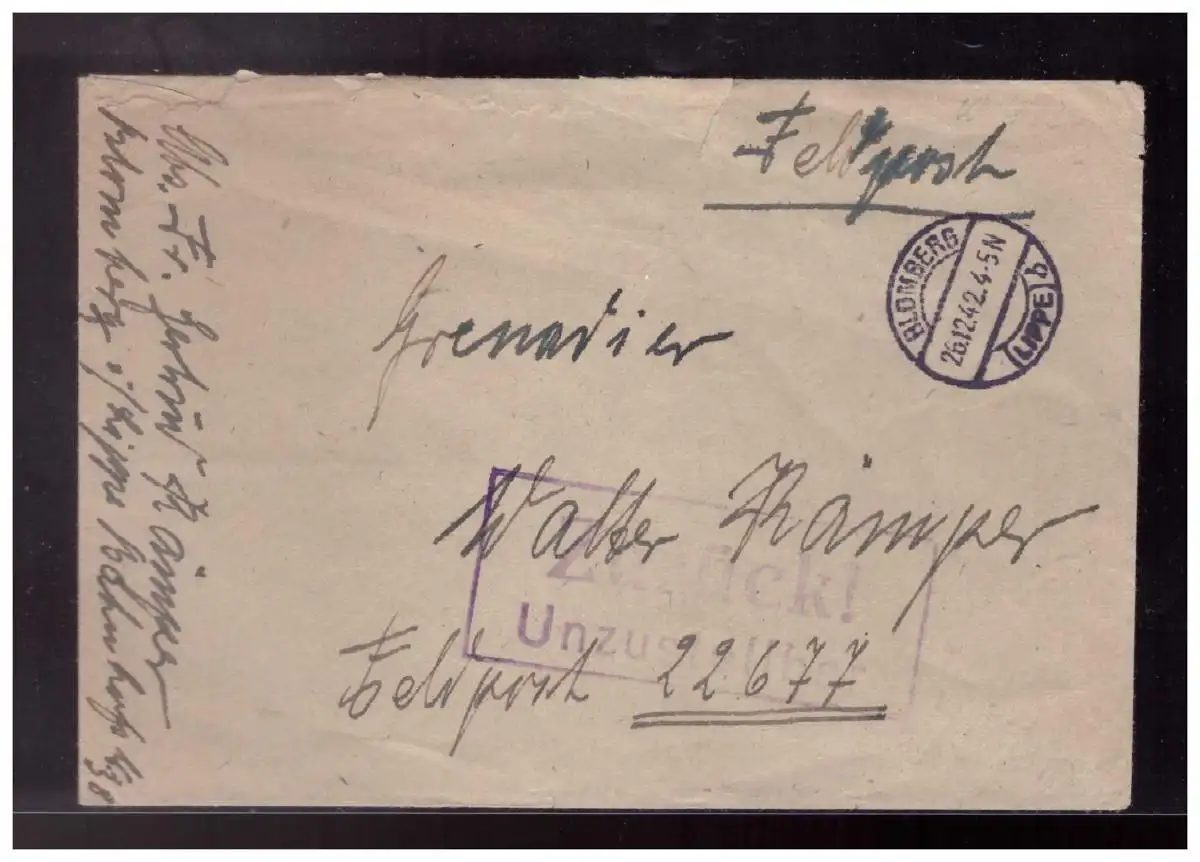 Feldpost
BLOMBERG
26.12.42.4-5N
(LIPPE) b
Grenadier
Walter Kämper
Zurück!
Unzustellbar
Feldpost 22677
Abs. Fr. Kämper
Blomberg i/Lippe